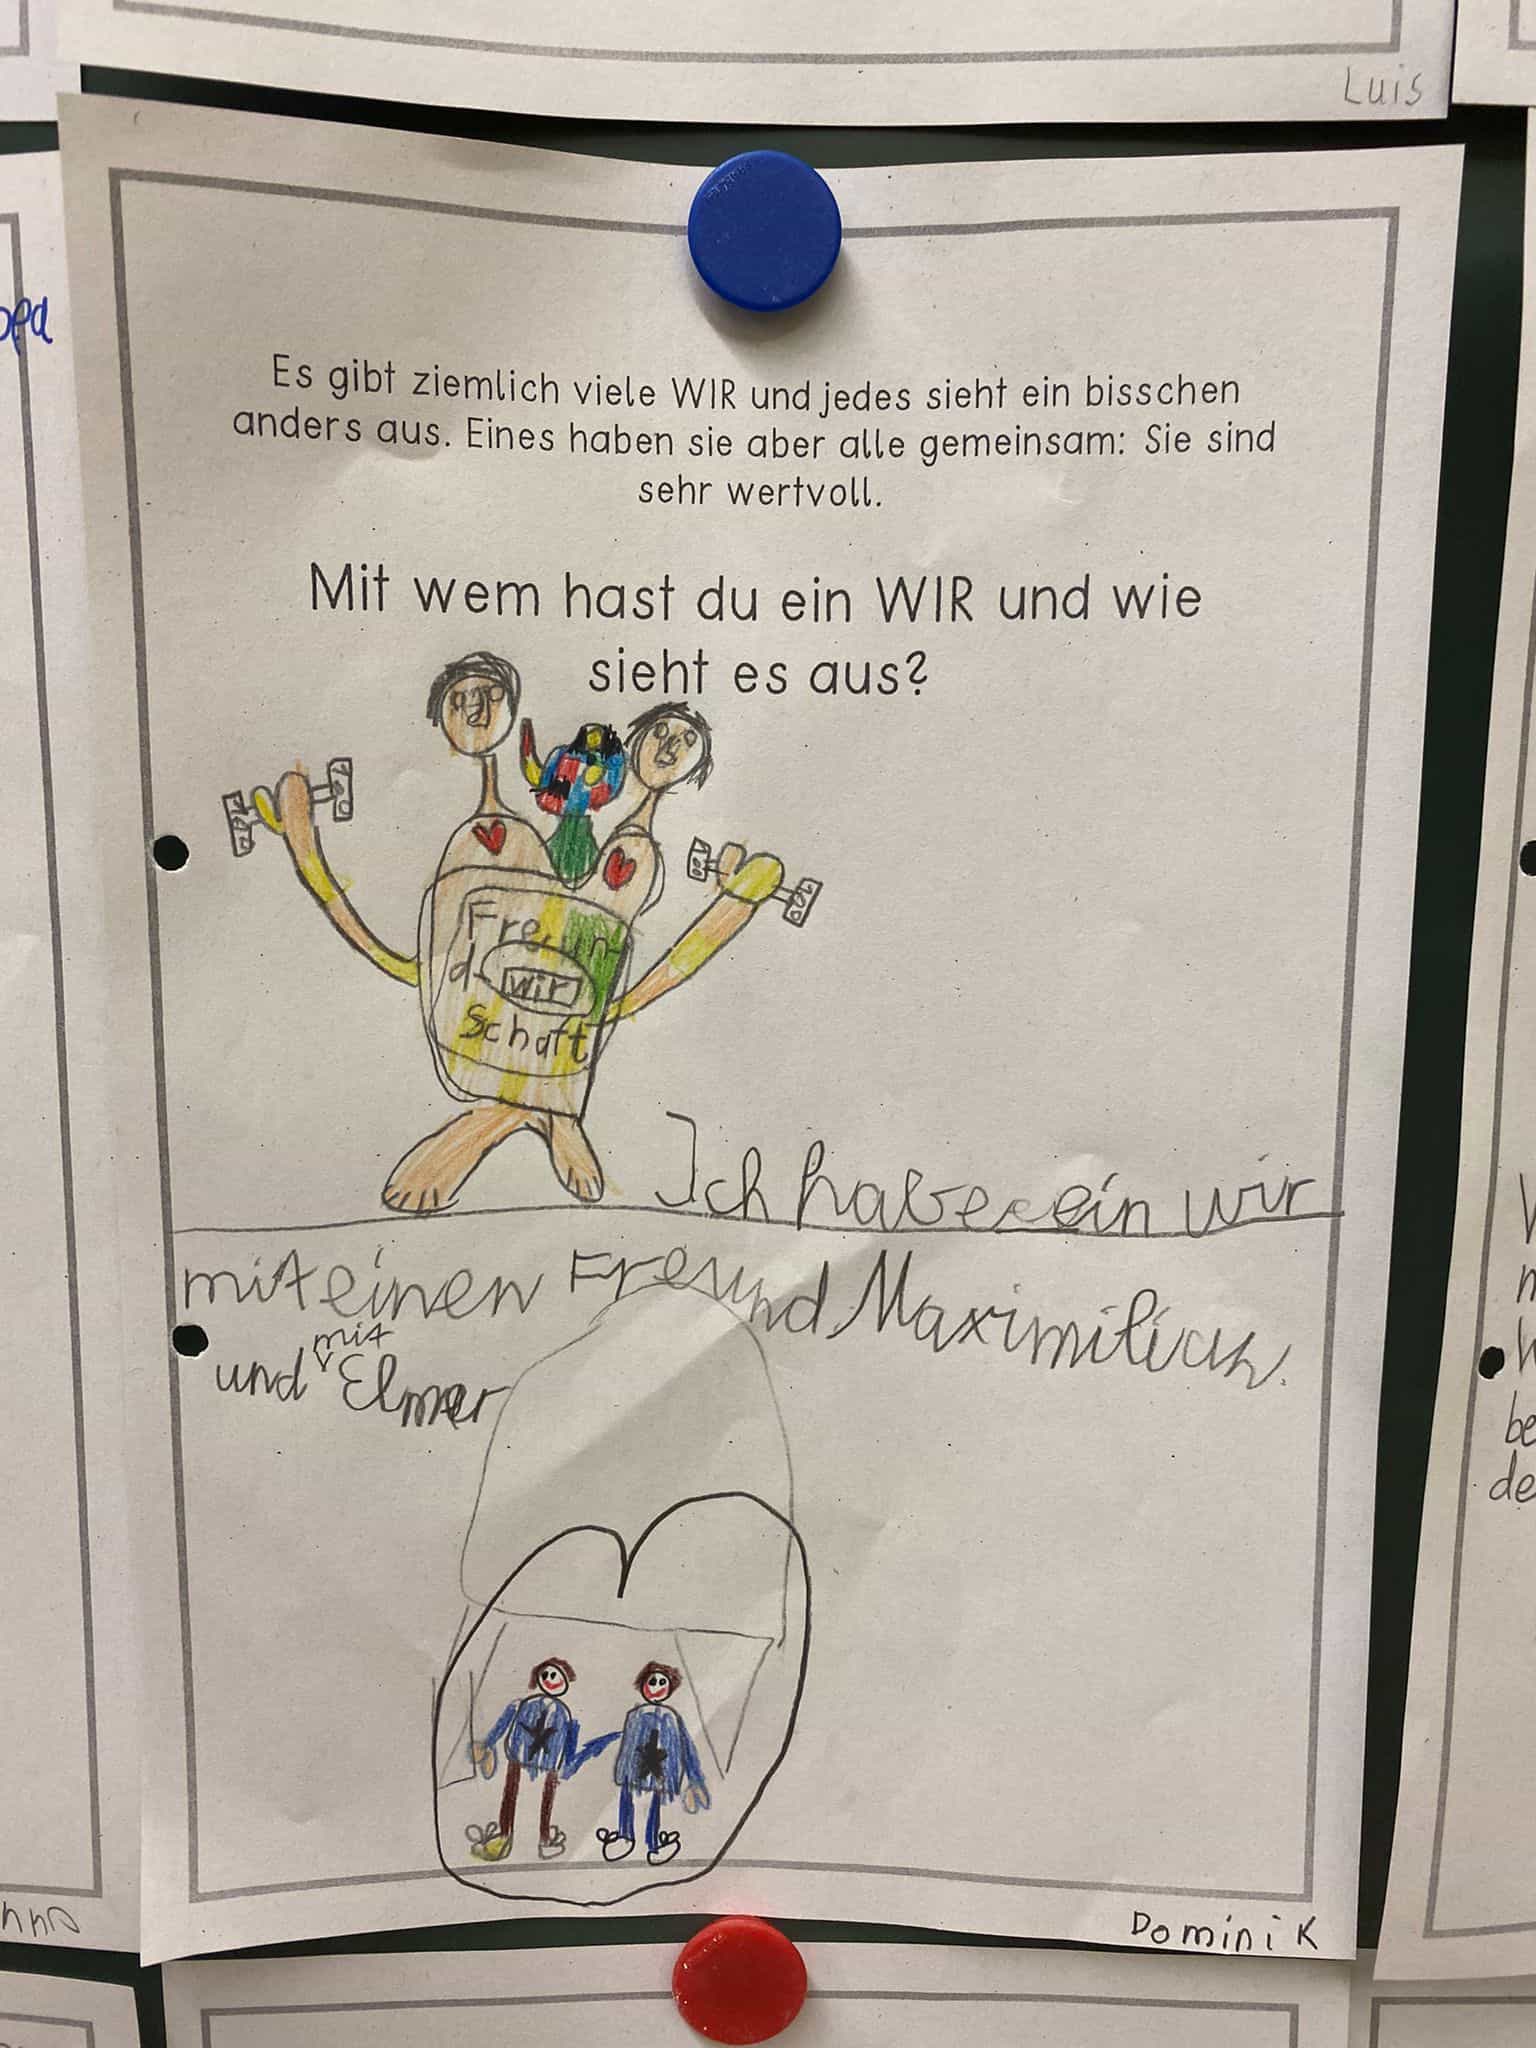 Luis
Es gibt ziemlich viele WIR und jedes sieht ein bisschen
anders aus. Eines haben sie aber alle gemeinsam: Sie sind
sehr wertvoll.
Mit wem hast du ein WIR und wie
sieht es aus?
100
100
100
100
Freun-
d-
wir
schaft
Ich habe ein wir
mit einen Freund Maximilian.
und mit Elmar
Dominik